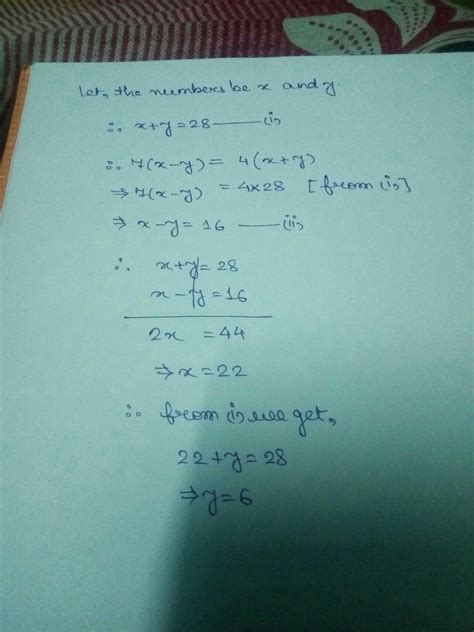 Let, the numbers be x and y.
∴ x+y=28 —— (i)
∴ 7(x-y) = 4(x+y)
⇒ 7(x-y) = 4×28 [from (i)]
⇒ x-y=16 —— (ii)
∴ x+y=28
x-y=16
2x =44
⇒ x=22
∴ from (i) we get,
22+y=28
⇒ y=6